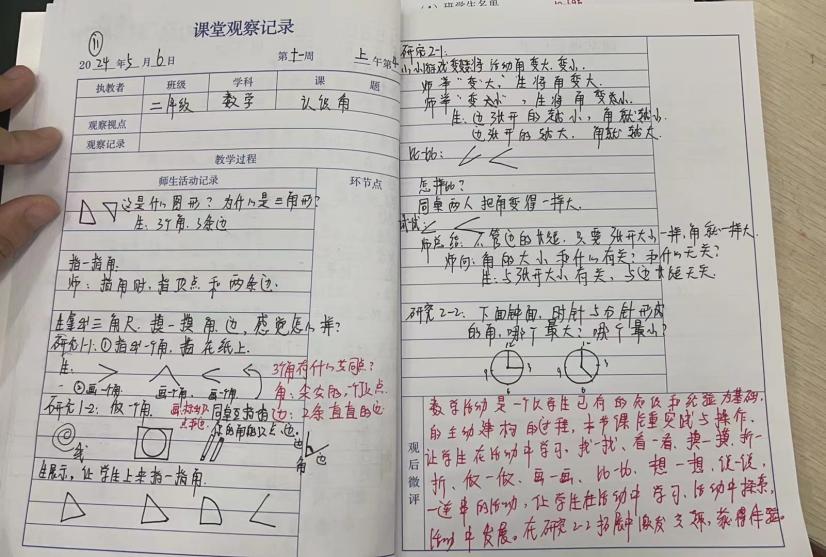 课堂观察记录
⑪
2024年5月6日 第十一周 上午第4
执教者 班级 学科 课 题
二年级 数学 认识角
观察视点
观察记录
教学过程
师生活动记录 环节点
这是什么图形？为什么是三角形？
生：3个角、3条边
指一指角.
师：指角时，指顶点和两条边.
生拿出三角尺.摸一摸角.边，感觉怎么样？
研究1-1：①指出一个角，描在纸上.
生：
3个角有什么共同点？
②画一个角. 画一个角. 画一个角.
角：尖尖的，一个顶点.
边：2条直直的边
研究1-2：做一个角. 同桌互指角
的顶点、边.
线
角 边
生展示，让学生上来指一指角.
研究2-1.
小游戏 将活动角变大.变小.
师举“变大”，生将角变大.
师举“变小”，生将角变小.
生：边张开的越小，角就越小.
边张开的越大，角就越大.
比一比：
怎样比？
同桌两人把角变得一样大.
试一试：
师总结：不管边的长短，只要张开大小一样，角就一样大.
师问：角的大小和什么有关？和什么无关？
生：与张开大小有关，与边长短无关.
研究2-2：下面钟面，时针与分针形成
的角，哪个最大？哪个最小？
12 9 3 6
12 9 3 6
观后微评
数学活动是一个以学生已有的知识和经验为基础，
的主动建构的过程，本节课注重实践与操作，
让学生在活动中学习，找一找、看一看、摸一摸、折一
折、做一做、画一画、比一比、想一想、说一说，
一连串的活动，让学生在活动中学习、活动中探索，
活动中发展。在研究2-2拓展中激发兴趣，获得体验。